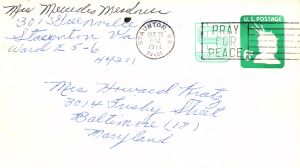 Mrs Mercedes Meadows
301 Greenville
Staunton Va
Ward 2 5-6
44201
STAUNTON, VA.
1971
24401
PRAY
FOR
PEACE
U.S. POSTAGE
6¢
Mrs Howard Kratz
3014 Trusty Street
Baltimore (13)
Maryland